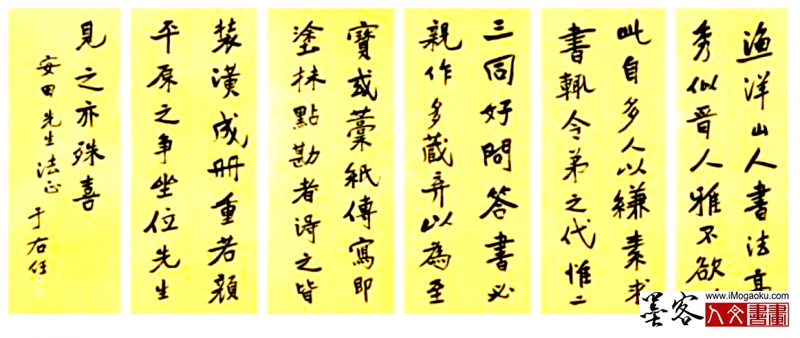 漁洋山人書法高
秀似晋人雅不欲
此自多人以縑素求
書輒令弟之代惟二
三同好問答書必
親作多藏弆以為至
寶或藁紙傳寫即
塗抹點勘者得之皆
裝潢成冊重若顏
平原之爭坐位先生
見之亦殊喜
安田先生法正
于右任
墨客
www.iMogaoku.com
人文書畫